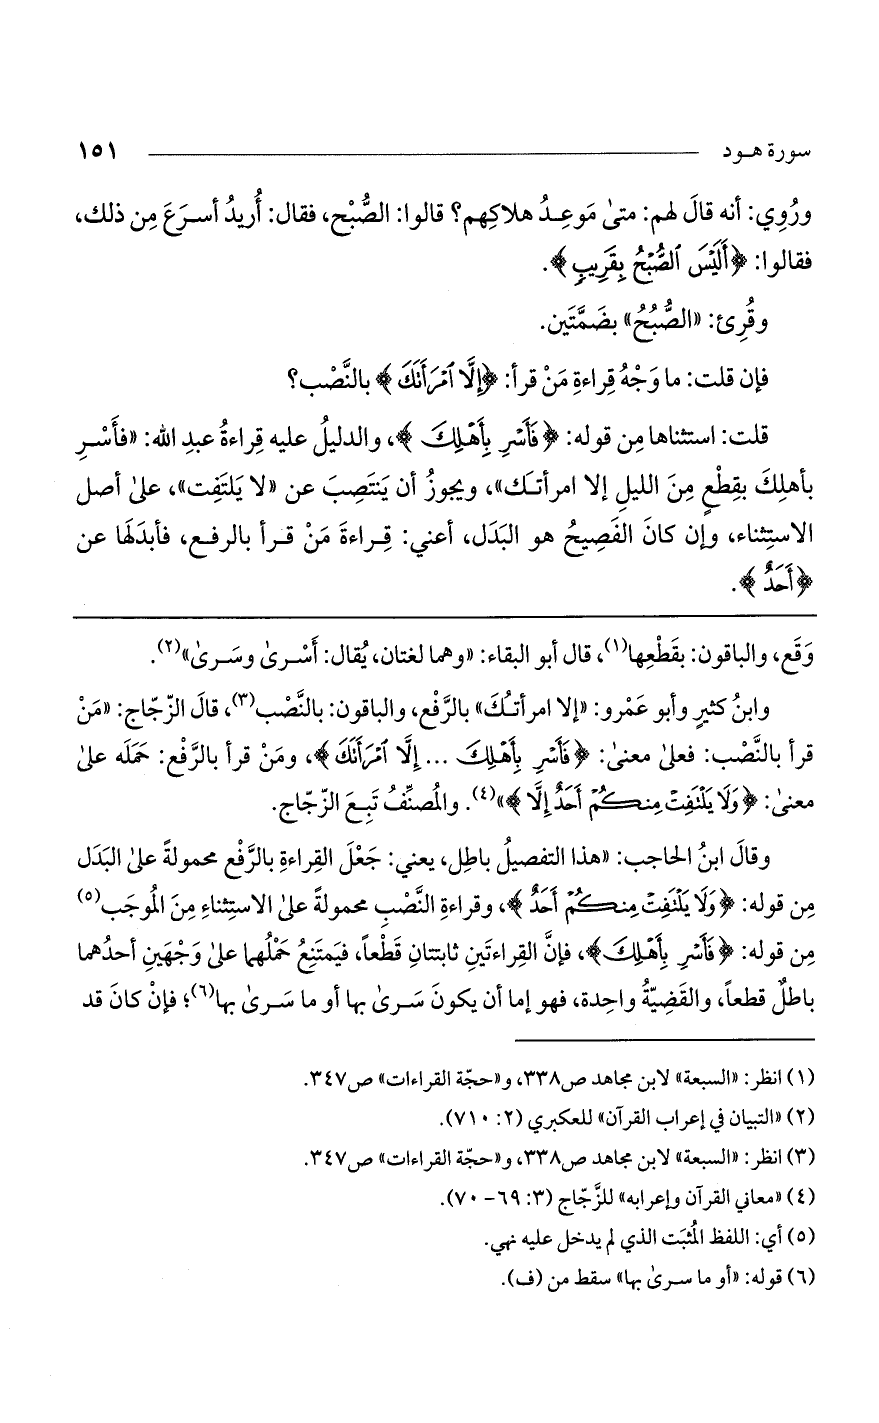 سورة هود ١٥١
ورُوِي: أنه قالَ لهم: متىٰ مَوعِدُ هلاكِهم؟ قالوا: الصُّبْح، فقال: أُريدُ أسرَعَ مِن ذلك،
فقالوا: ﴿أَلَيْسَ ٱلصُّبْحُ بِقَرِيبٍ﴾.
وقُرِئ: «الصُّبُحُ» بضَمَّتَين.
فإن قلت: ما وَجْهُ قِراءةِ مَنْ قرأ: ﴿إِلَّا ٱمْرَأَتَكَ﴾ بالنَّصْب؟
قلت: استثناها مِن قوله: ﴿فَأَسْرِ بِأَهْلِكَ﴾، والدليلُ عليه قِراءةُ عبدِ الله: «فأَسْرِ
بأهلِكَ بقِطْعٍ مِنَ الليلِ إلا امرأتَك»، ويجوزُ أن يَنتَصِبَ عن «لا يَلتَفِت»، علىٰ أصل
الاستِثناء، وإن كانَ الفَصِيحُ هو البَدَل، أعني: قِراءةَ مَنْ قرأ بالرفع، فأبدَلَها عن
﴿أَحَدٌ﴾.
وَقَع، والباقون: بقَطْعِها(١)، قال أبو البقاء: «وهما لغتان، يُقال: أَسْرىٰ وسَرىٰ»(٢).
وابنُ كثيرٍ وأبو عَمْرو: «إلا امرأتُكَ» بالرَّفْع، والباقون: بالنَّصْب(٣)، قالَ الزّجّاج: «مَنْ
قرأ بالنَّصْب: فعلىٰ معنىٰ: ﴿فَأَسْرِ بِأَهْلِكَ ... إِلَّا ٱمْرَأَتَكَ﴾، ومَنْ قرأ بالرَّفْع: حَمَلَه علىٰ
معنىٰ: ﴿وَلَا يَلْتَفِتْ مِنكُمْ أَحَدٌ إِلَّا﴾»(٤). والمُصنِّفُ تَبِعَ الزّجّاج.
وقالَ ابنُ الحاجب: «هذا التفصيلُ باطِل، يعني: جَعْلَ القِراءةِ بالرَّفْع محمولةً علىٰ البَدَل
مِن قوله: ﴿وَلَا يَلْتَفِتْ مِنكُمْ أَحَدٌ﴾، وقراءةِ النَّصْبِ محمولةً علىٰ الاستِثناءِ مِنَ المُوجَب(٥)
مِن قوله: ﴿فَأَسْرِ بِأَهْلِكَ﴾، فإنَّ القِراءتَينِ ثابتتانِ قَطْعاً، فيَمتَنِعُ حَمْلُهما علىٰ وَجْهَينِ أحدُهما
باطلٌ قطعاً، والقَضِيّةُ واحِدة، فهو إما أن يكونَ سَرىٰ بها أو ما سَرىٰ بها(٦)؛ فإنْ كانَ قد
(١) انظر: «السبعة» لابن مجاهد ص٣٣٨، و«حجّة القراءات» ص٣٤٧.
(٢) «التبيان في إعراب القرآن» للعكبري (٢: ٧١٠).
(٣) انظر: «السبعة» لابن مجاهد ص٣٣٨، و«حجّة القراءات» ص٣٤٧.
(٤) «معاني القرآن وإعرابه» للزَّجّاج (٣: ٦٩- ٧٠).
(٥) أي: اللفظ المُثبَت الذي لم يدخل عليه نهي.
(٦) قوله: «أو ما سرىٰ بها» سقط من (ف).